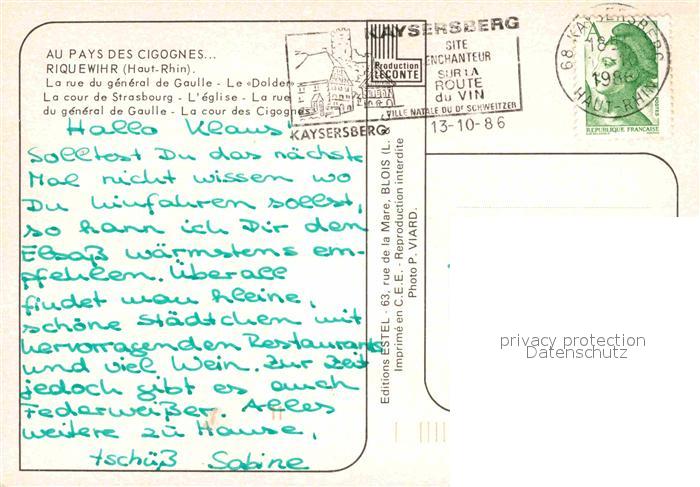 AU PAYS DES CIGOGNES...
RIQUEWIHR (Haut-Rhin).
La rue du général de Gaulle - Le «Dolder»
La cour de Strasbourg - L'église - La rue
du général de Gaulle - La cour des Cigognes
Hallo Klaus!
Solltest Du das nächste
Mal nicht wissen wo
Du hinfahren sollst,
so kann ich Dir den
Elsaß wärmstens em-
pfehlen. Überall
findet man kleine,
schöne Städtchen mit
hervorragenden Restaurants
und viel Wein. Zur Zeit
jedoch gibt es auch
Federweißer. Alles
weitere zu Hause,
tschüß Sabine
Production
LECONTE
KAYSERSBERG
KAYSERSBERG
SITE
ENCHANTEUR
SUR LA
ROUTE
du VIN
VILLE NATALE DU Dr SCHWEITZER
13-10-86
68 KAYSERSBERG
18
1986
HAUT-RHIN
A
POSTES
REPUBLIQUE FRANÇAISE
Editions ESTEL - 63, rue de la Mare, BLOIS (L.
Imprimé en C.E.E. - Reproduction interdite
Photo P. VIARD.
privacy protection
Datenschutz